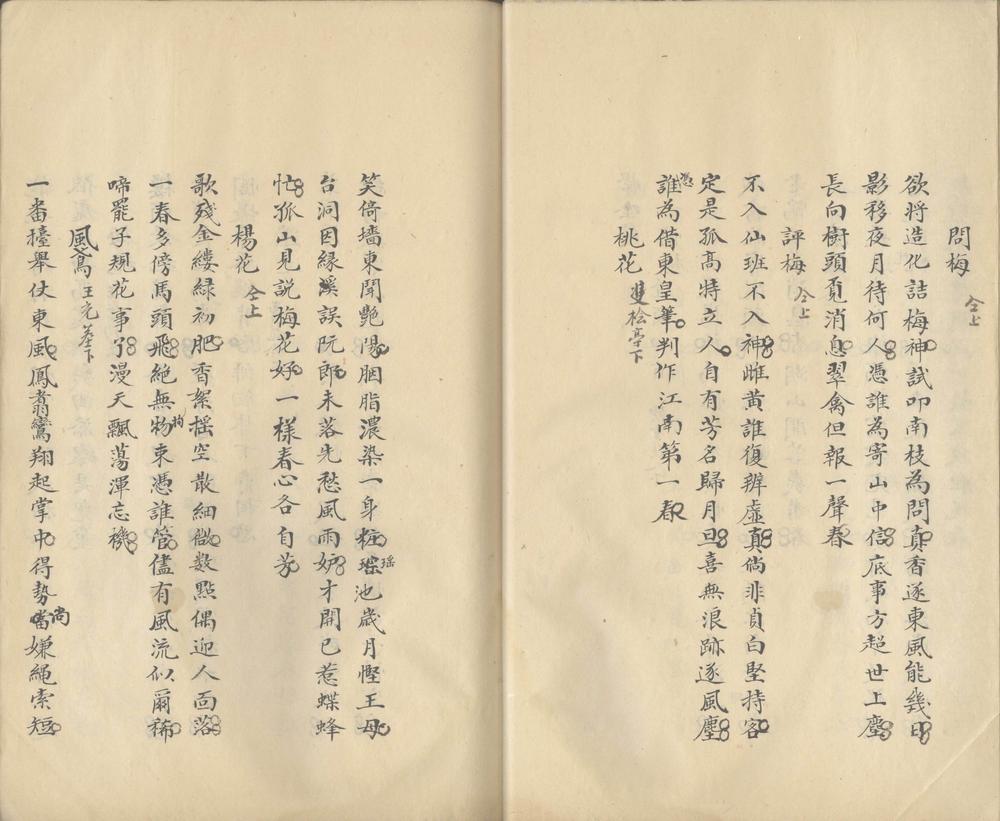 問梅 仝上
欲將造化詰梅神試叩南枝為問真香遂東風能幾日
影移夜月待何人憑誰為寄山中信底事方超世上塵
長向樹頭覔消息翠禽但報一聲春
評梅 仝上
不入仙班不入神雌黄誰復辨虛真倘非貞白堅持客
定是孤高特立人自有芳名歸月旦喜無浪跡遂風塵
誰憑為借東皇筆判作江南第一春
桃花 雙桧亭下
笑倚墻東開艷陽胭脂濃染一身粧瑤瑶池歳月慳王母
台洞因緣溪誤阮郎未落先愁風雨妒才開已惹蝶蜂
忙孤山見説梅花好一樣春心各自芳
楊花 仝上
歌殘金縷緑初肥香絮揺空散細微數點偶迎人面落
一春多傍馬頭飛絶無物拘束憑誰管儘有風流似爾稀
啼罷子規花事了漫天飄蕩渾忘機
風鳶 王克莶下
一番擡舉仗東風鳳翥鸞翔起掌中得勢當尚嫌繩索短